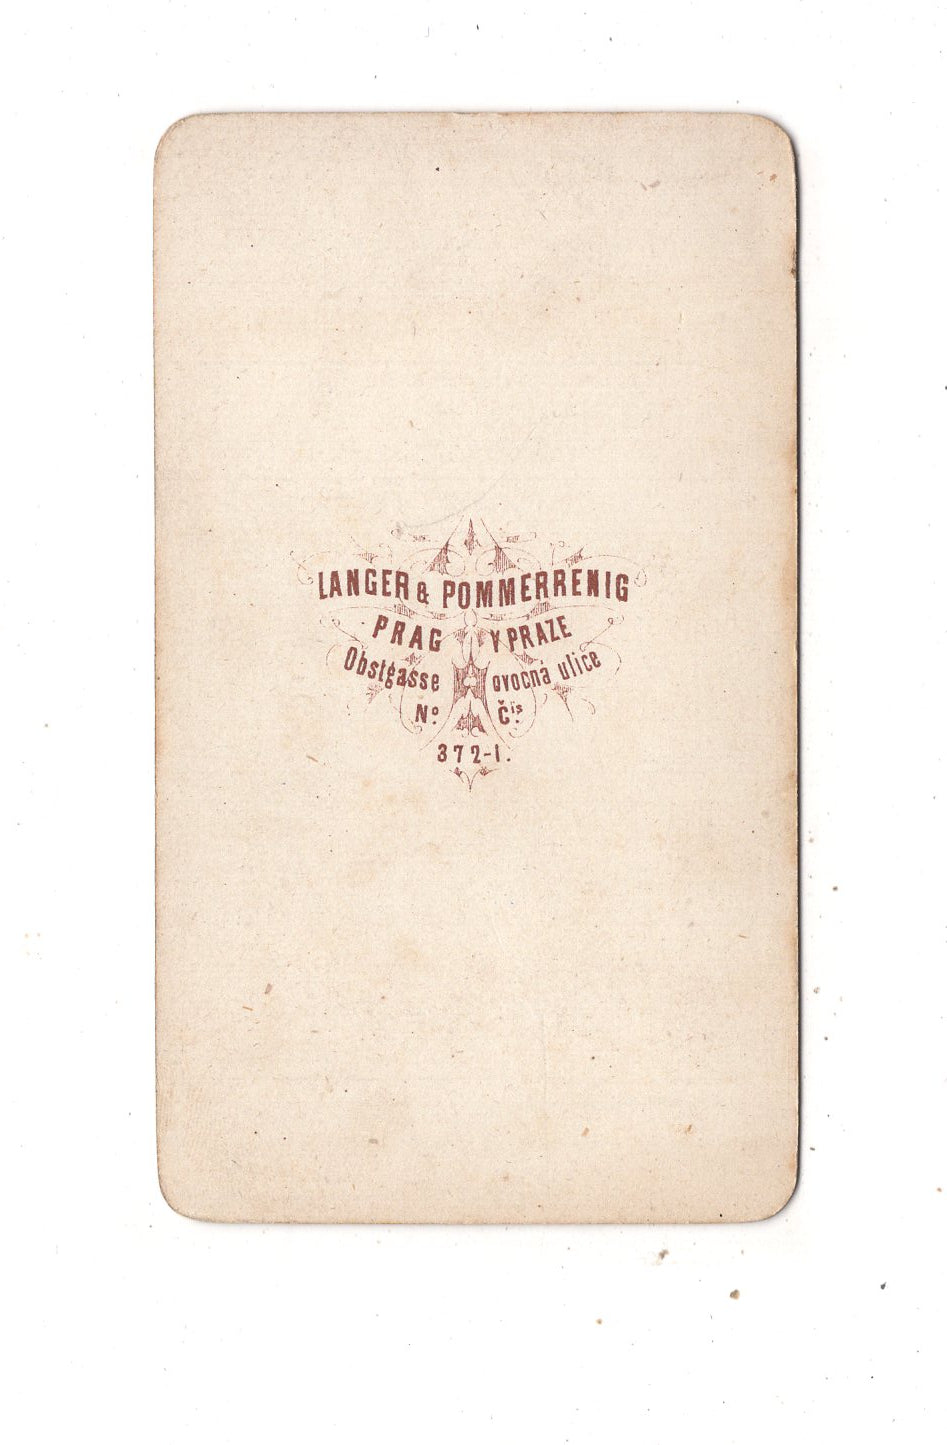 LANGER & POMMERRENIG
PRAG V PRAZE
Obstgasse ovocná ulice
No. Čís.
372-I.